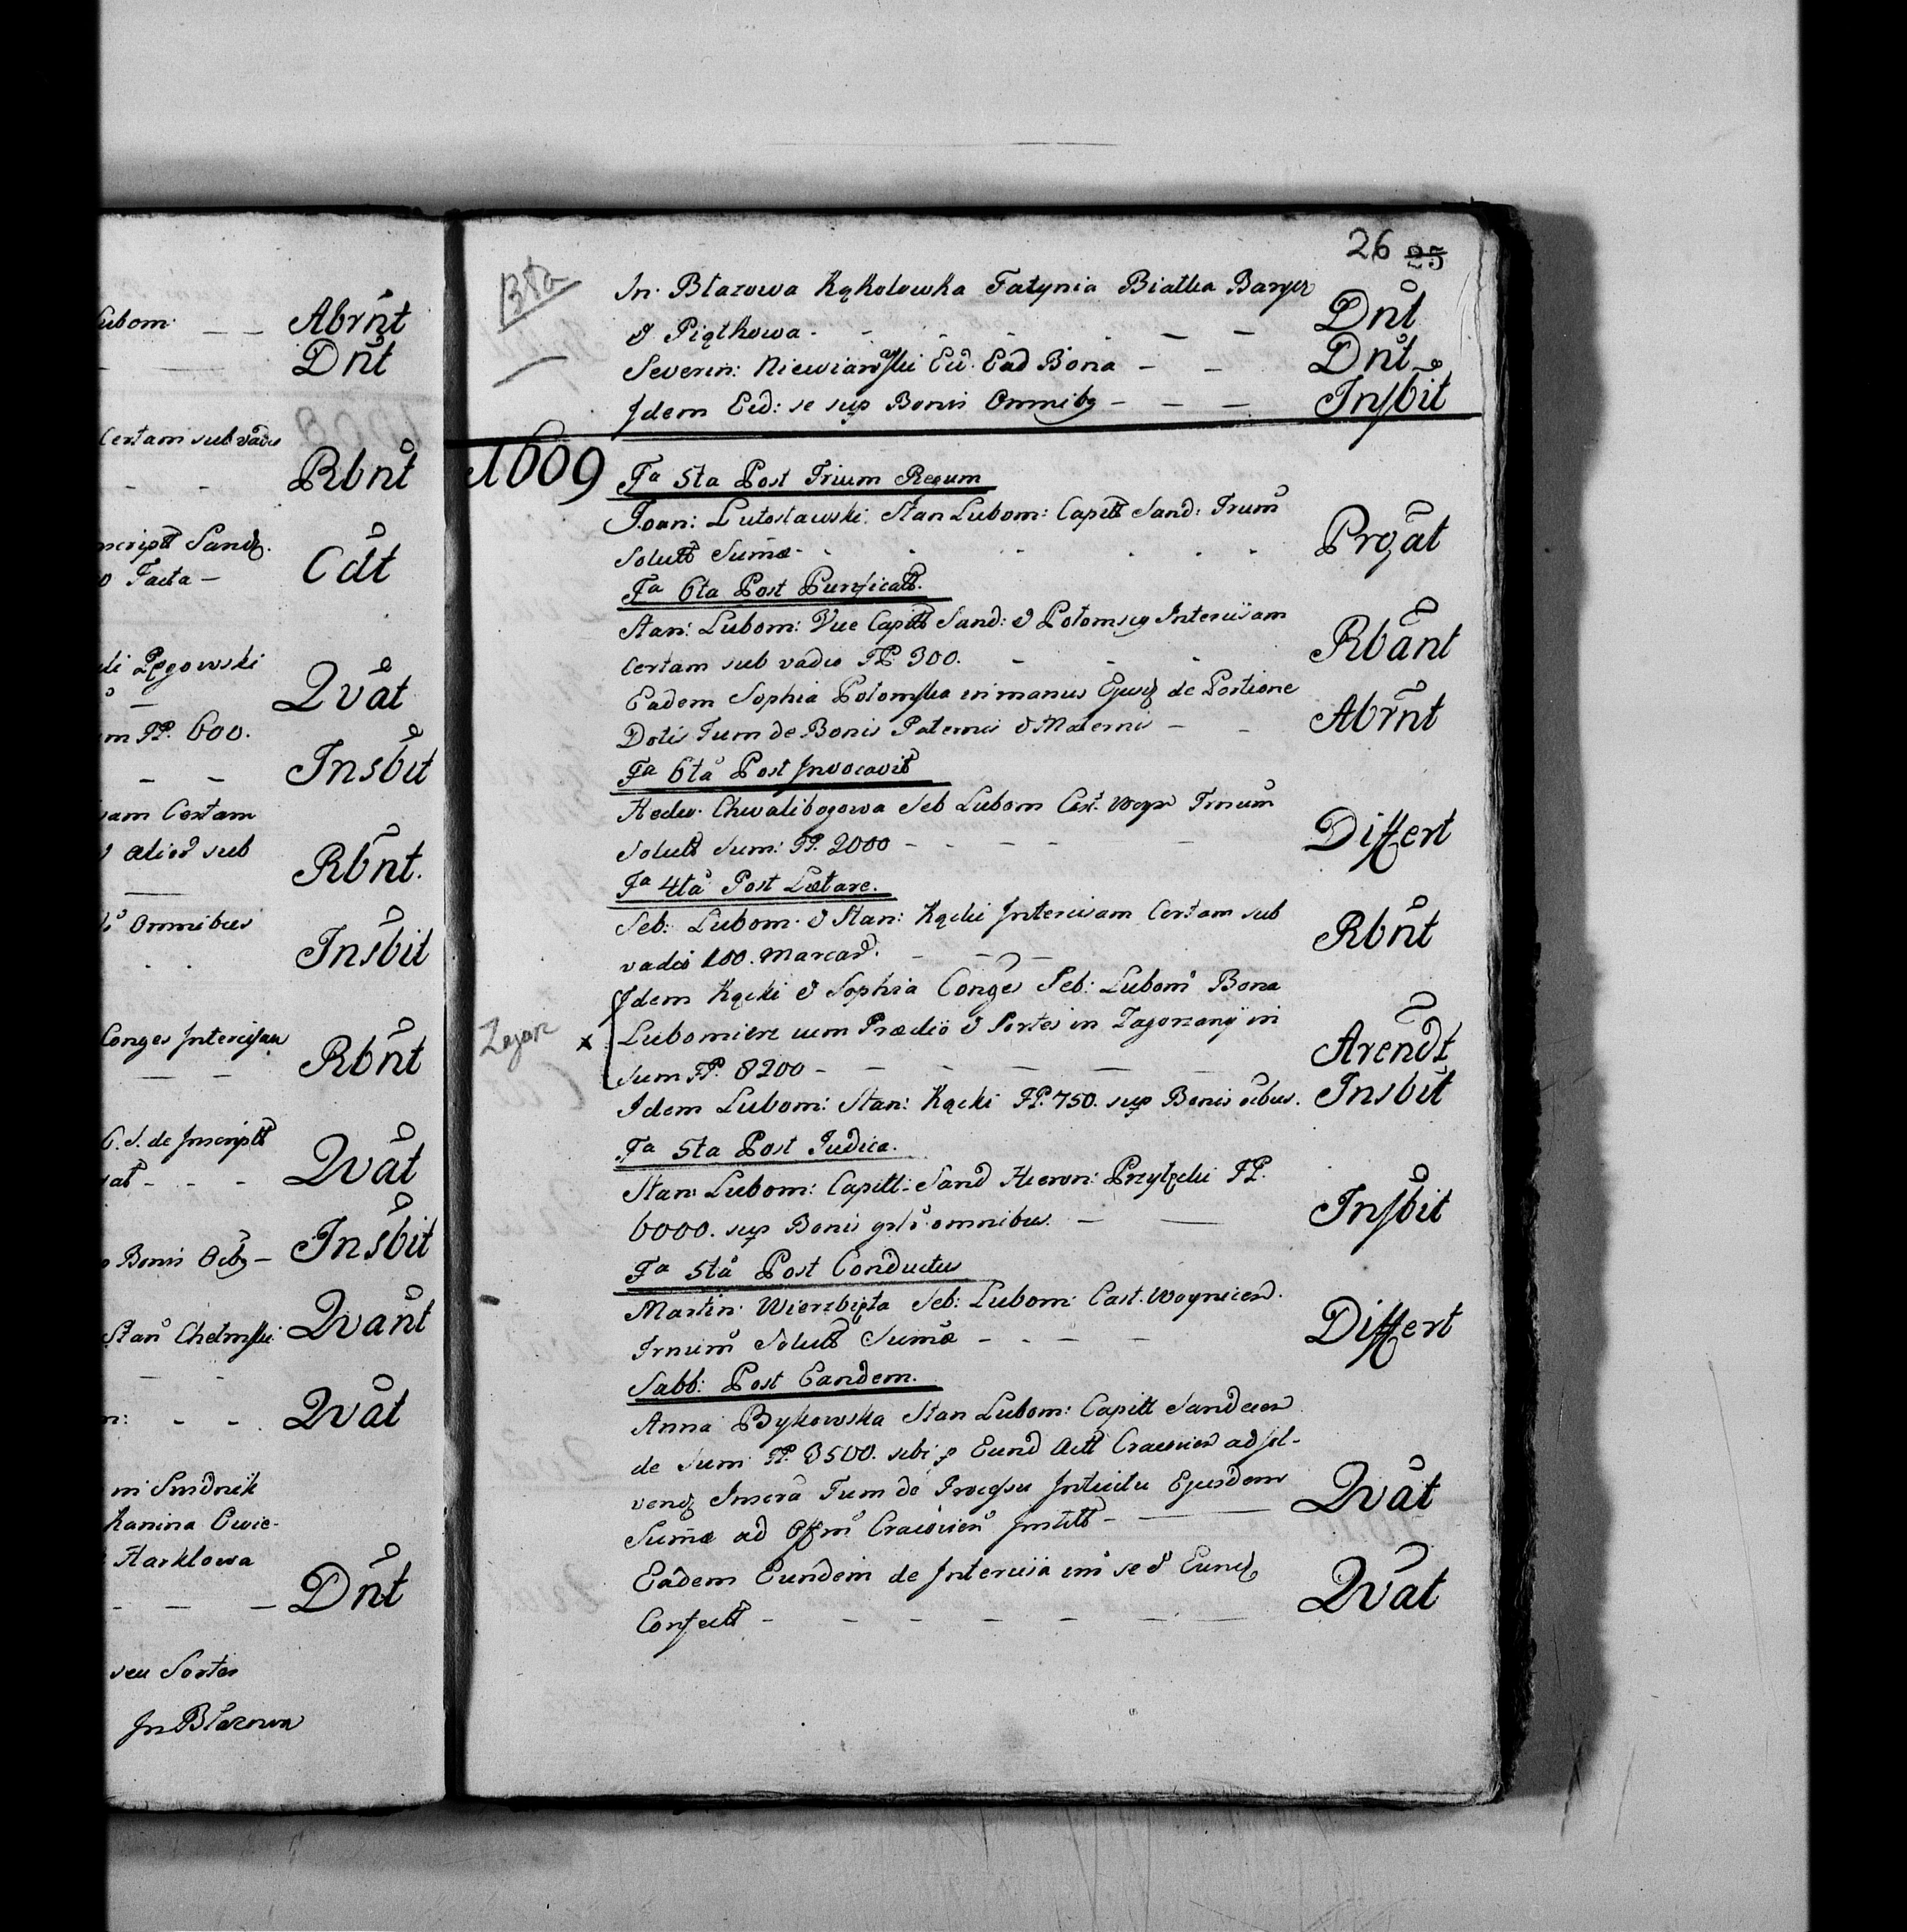 Lubom. — — Abrñt
— — Dñt
Certam sub vadio
- - Rbñt
Sandz.
Facta — Cdt
Pęgowski
— Qvat
m PP. 600.
— — Insbit
Certam
sub
— Rbnt.
Omnibus
. . Insbit
Conges Intercisam
— — Rbñt
C. S. de Inscriptt
- - - Qvat
Bonis Oeby — Insbit
Stan Chelmski Qvant
- -
- - Qvat
Hanina Owie-
Harklowa
— — — Dñt
seu Sortes
Jn Błazowa
26 25
Bła
Jn. Błazowa Kąkolowka Fatynia Białka Baryer
& Piątkowa. - - - - — — Dñt
Severin: Niewiarowski Eid. Ead Bona — — Dñt
Jdem Eid: se sup Bonis Omniby — — — Insbit
1609 Fa 5ta Post Trium Regum
Joan: Lutosławski. Stan Lubom: Capitt Sand: Trum
Solutt Suma - - - - - Prgat
Fa 6ta Post Purificatt.
Stan: Lubom: Vice Capitt Sand: & Potomscy Intercisam
Certam sub vadio PP. 300. - - - Rbant
Eadem Sophia Potomska in manus Ejusd de Portione
Dotis Tum de Bonis Paternis & Maternis — - Abrnt
Fa 6ta Post Jnvocavit
Hedw. Chwalibogowa Seb Lubom Cast. Woyn Trnum
Solutt Sum: PP. 2000 - - - - — Differt
Fa 4ta Post Lætare.
Seb: Lubom. & Stan: Kącki Jntercisam Certam sub
vadio 100. Marcar. - - - Rbñt
Jdem Kącki & Sophia Conges Seb: Lubom Bona
Zagorz x Lubomierz cum Prædio & Sortes in Zagorzany in
Sum PP. 8200 - — — — — — Arendt
Idem Lubom: Stan: Kącki PP. 750. sup Bonis oibus. Insbit
Fa 5ta Post Judica.
Stan: Lubom: Capitt: Sand Hieron: Przyłęcki PP.
6000. sup Bonis omnibus. — — Insbit
Fa 5ta Post Conductus
Martin: Wierzbięta Seb: Lubom: Cast. Woynicien.
Trnum Solutt Sumæ - - - — Differt
Sabb: Post Eandem.
Anna Bykowska Stan Lubom: Capitt Sandecen
de Sum PP. 3500. sibi p Eund Actt Cracovien ad sol-
vend Inscra Tum de Procesu Jntuitu Ejusdem
Sumæ ad Offm Cracovien Jnstitt - — — Qvat
Eadem Eundem de Jntercisia int se & Eund
Confectt - - - - - — — Qvat